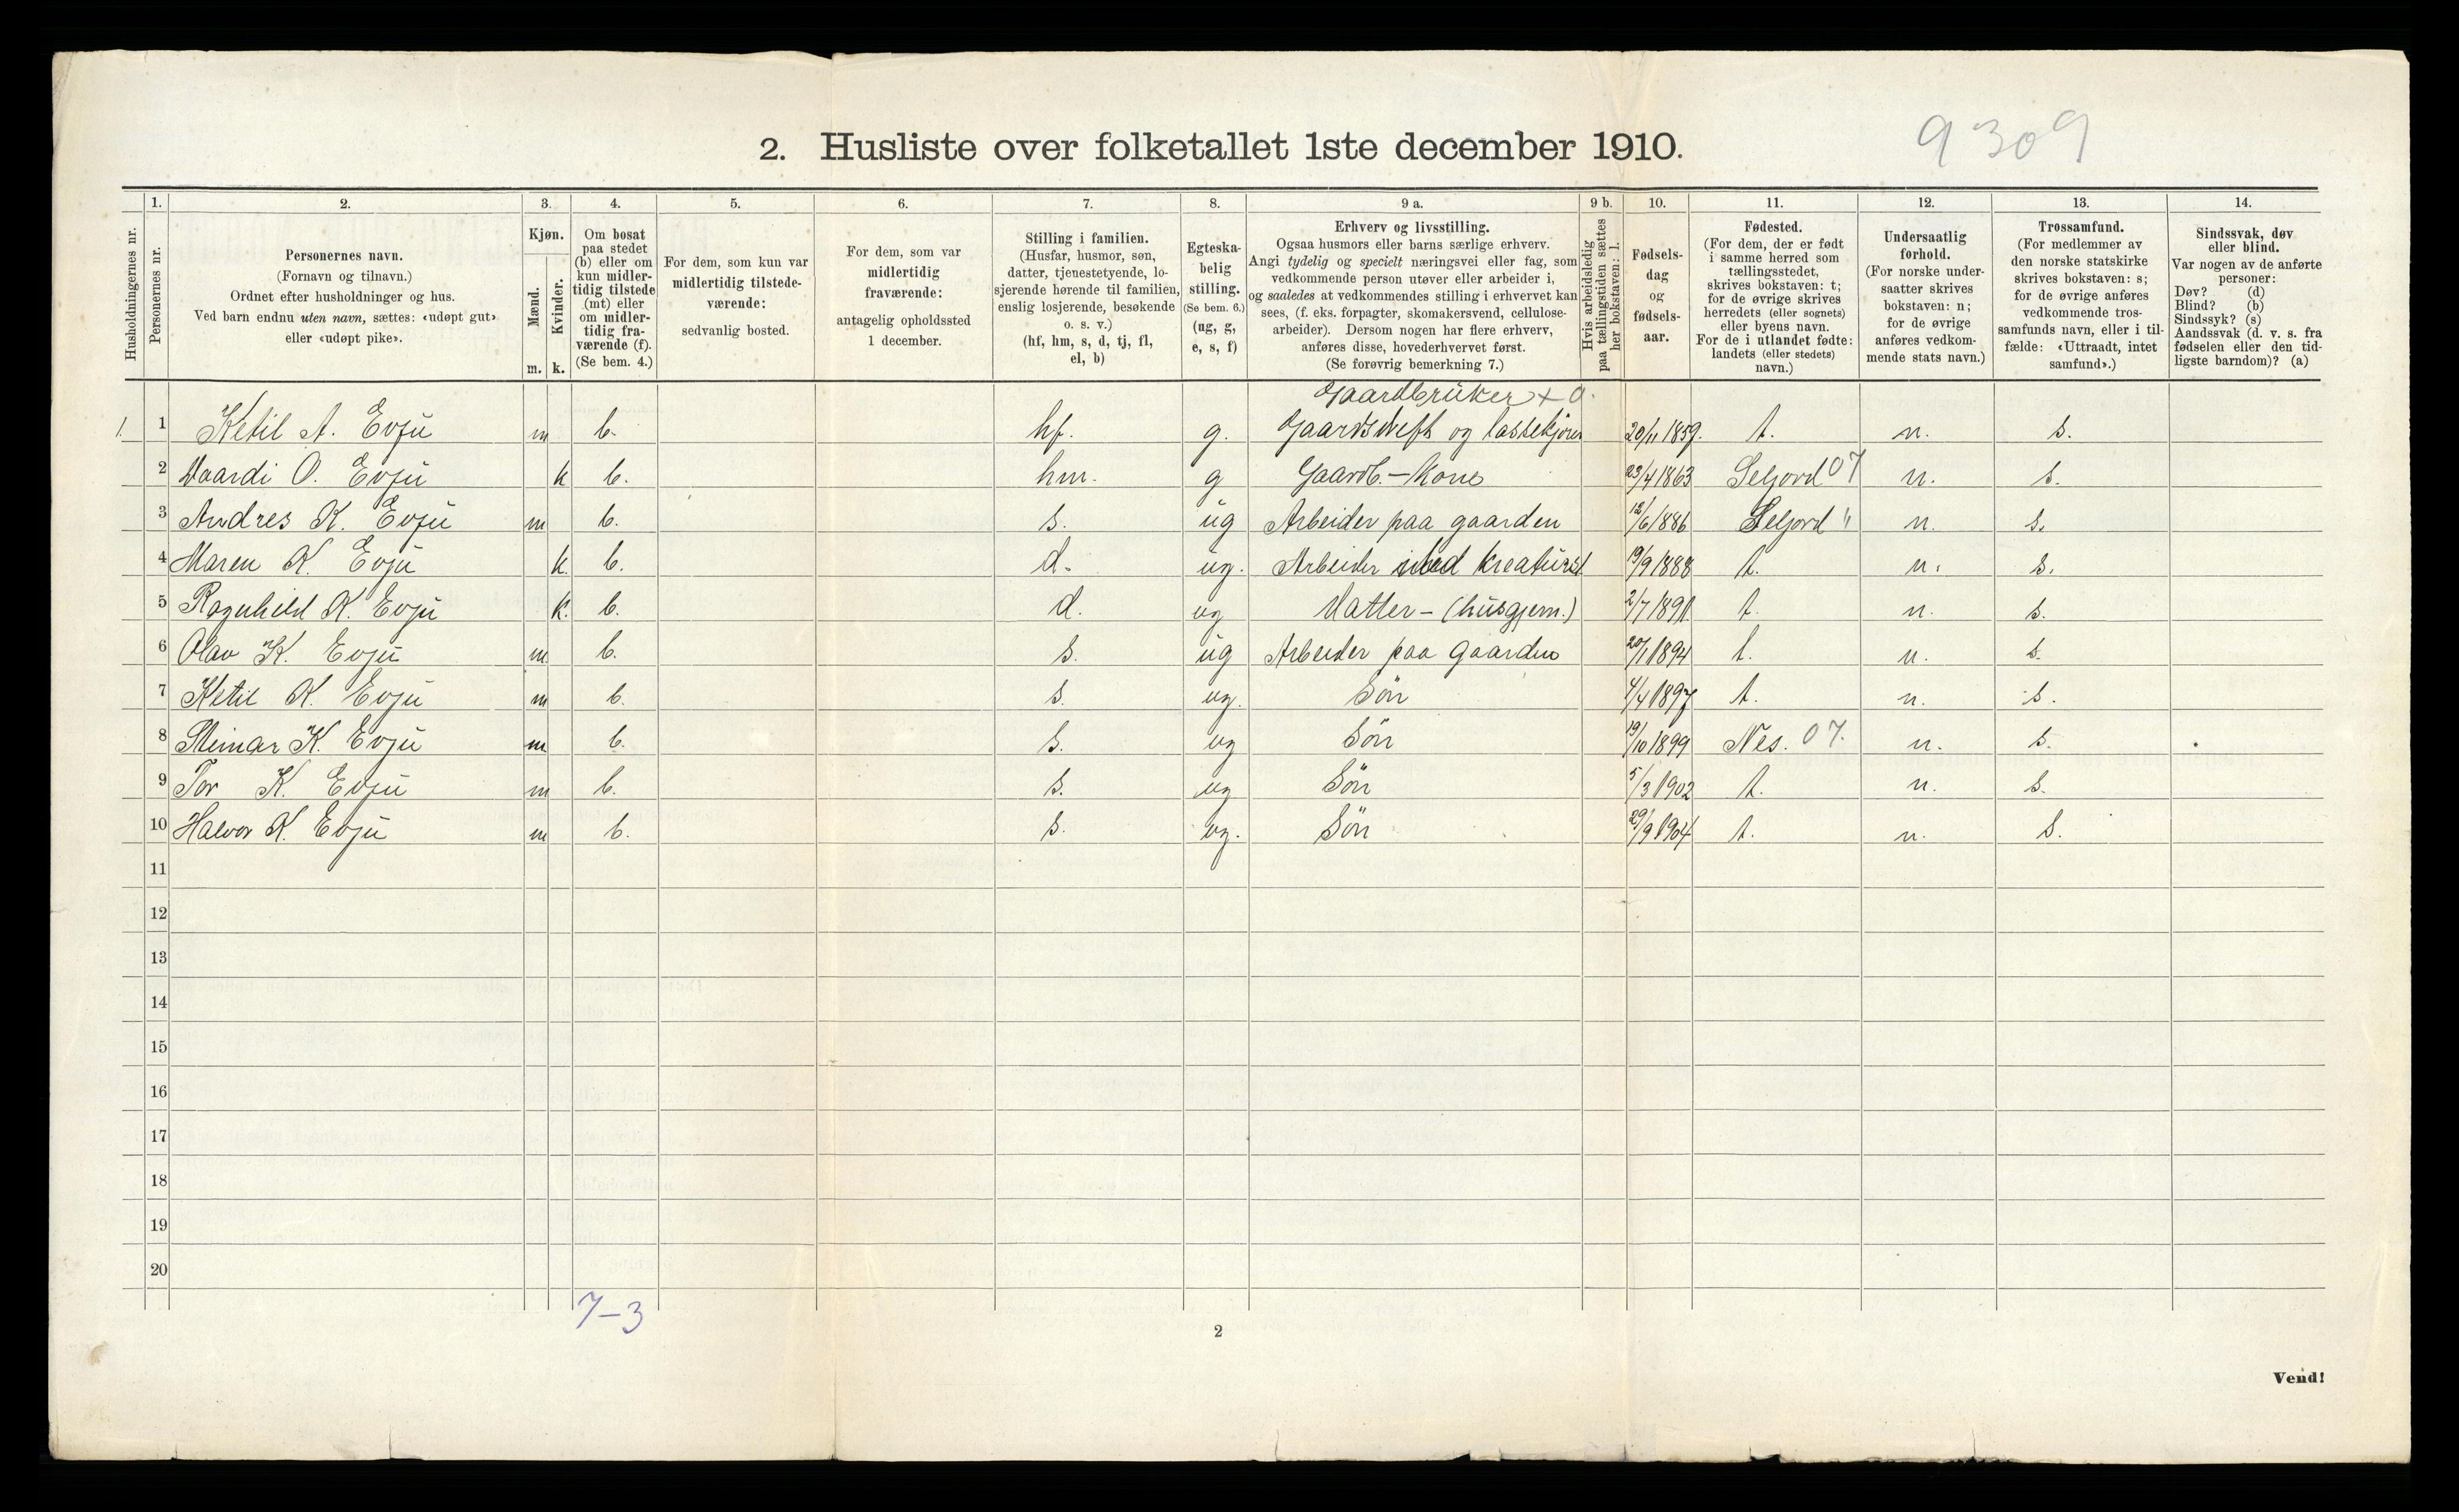 9309
2. Husliste over folketallet 1ste december 1910.
Husholdningernes nr.
1.
Personernes nr.
2.
Personernes navn.
(Fornavn og tilnavn.)
Ordnet efter husholdninger og hus.
Ved barn endnu uten navn, sættes: «udøpt gut»
eller «udøpt pike».
3.
Kjøn.
Mænd.
Kvinder.
m. k.
4.
Om bosat
paa stedet
(b) eller om
kun midler-
tidig tilstede
(mt) eller
om midler-
tidig fra-
værende (f).
(Se bem. 4.)
5.
For dem, som kun var
midlertidig tilstede-
værende:
sedvanlig bosted.
6.
For dem, som var
midlertidig
fraværende:
antagelig opholdssted
1 december.
7.
Stilling i familien.
(Husfar, husmor, søn,
datter, tjenestetyende, lo-
sjerende hørende til familien,
enslig losjerende, besøkende
o. s. v.)
(hf, hm, s, d, tj, fl,
el, b)
8.
Egteska-
belig
stilling.
(Se bem. 6.)
(ug, g,
e, s, f)
9 a.
Erhverv og livsstilling.
Ogsaa husmors eller barns særlige erhverv.
Angi tydelig og specielt næringsvei eller fag, som
vedkommende person utøver eller arbeider i,
og saaledes at vedkommendes stilling i erhvervet kan
sees, (f. eks. forpagter, skomakersvend, cellulose-
arbeider). Dersom nogen har flere erhverv,
anføres disse, hovederhvervet først.
(Se forøvrig bemerkning 7.)
9 b.
Hvis arbeidsledig
paa tællingstiden sættes
her bokstaven: l.
10.
Fødsels-
dag
og
fødsels-
aar.
11.
Fødested.
(For dem, der er født
i samme herred som
tællingsstedet,
skrives bokstaven: t;
for de øvrige skrives
herredets (eller sognets)
eller byens navn.
For de i utlandet fødte:
landets (eller stedets)
navn.)
12.
Undersaatlig
forhold.
(For norske under-
saatter skrives
bokstaven: n;
for de øvrige
anføres vedkom-
mende stats navn.)
13.
Trossamfund.
(For medlemmer av
den norske statskirke
skrives bokstaven: s;
for de øvrige anføres
vedkommende tros-
samfunds navn, eller i til-
fælde: «Uttraadt, intet
samfund».)
14.
Sindssvak, døv
eller blind.
Var nogen av de anførte
personer:
Døv? (d)
Blind? (b)
Sindssyk? (s)
Aandssvak (d. v. s. fra
fødselen eller den tid-
ligste barndom)? (a)
Gaardbruker + 0.
1. 1 Ketil A. Evju m b. hf. g. og lassekjører 20/11 1859. t. n. s.
2 O. Evju k b. hm. g Gaardb.-Kone 23/4 1863 Seljord 07 n. s.
3 Andres K. Evju m b. s. ug Arbeider paa gaarden 12/6 1886 Seljord " n. s.
4 Maren K. Evju k. b. d. ug. Arbeider med 19/9 1888 t. n. s.
5 Ragnhild K. Evju k. b. d. ug Datter - (husgjern.) 2/7 1891 t. n. s.
6 Olav K. Evju m. b. s. ug Arbeider paa gaarden 20/1 1894 t. n. s.
7 Ketil K. Evju m b. s. ug. Sön 4/4 1897 t. n. s.
8 Steinar K. Evju m b. s. ug Sön 19/10 1899 Nes. 07. n. s.
9 Tor K. Evju m b. s. ug Sön 5/3 1902 t. n. s.
10 Halvor K. Evju m b. s. ug. Sön 29/9 1904 t. n. s.
11
12
13
14
15
16
17
18
19
20
7-3
2
Vend!